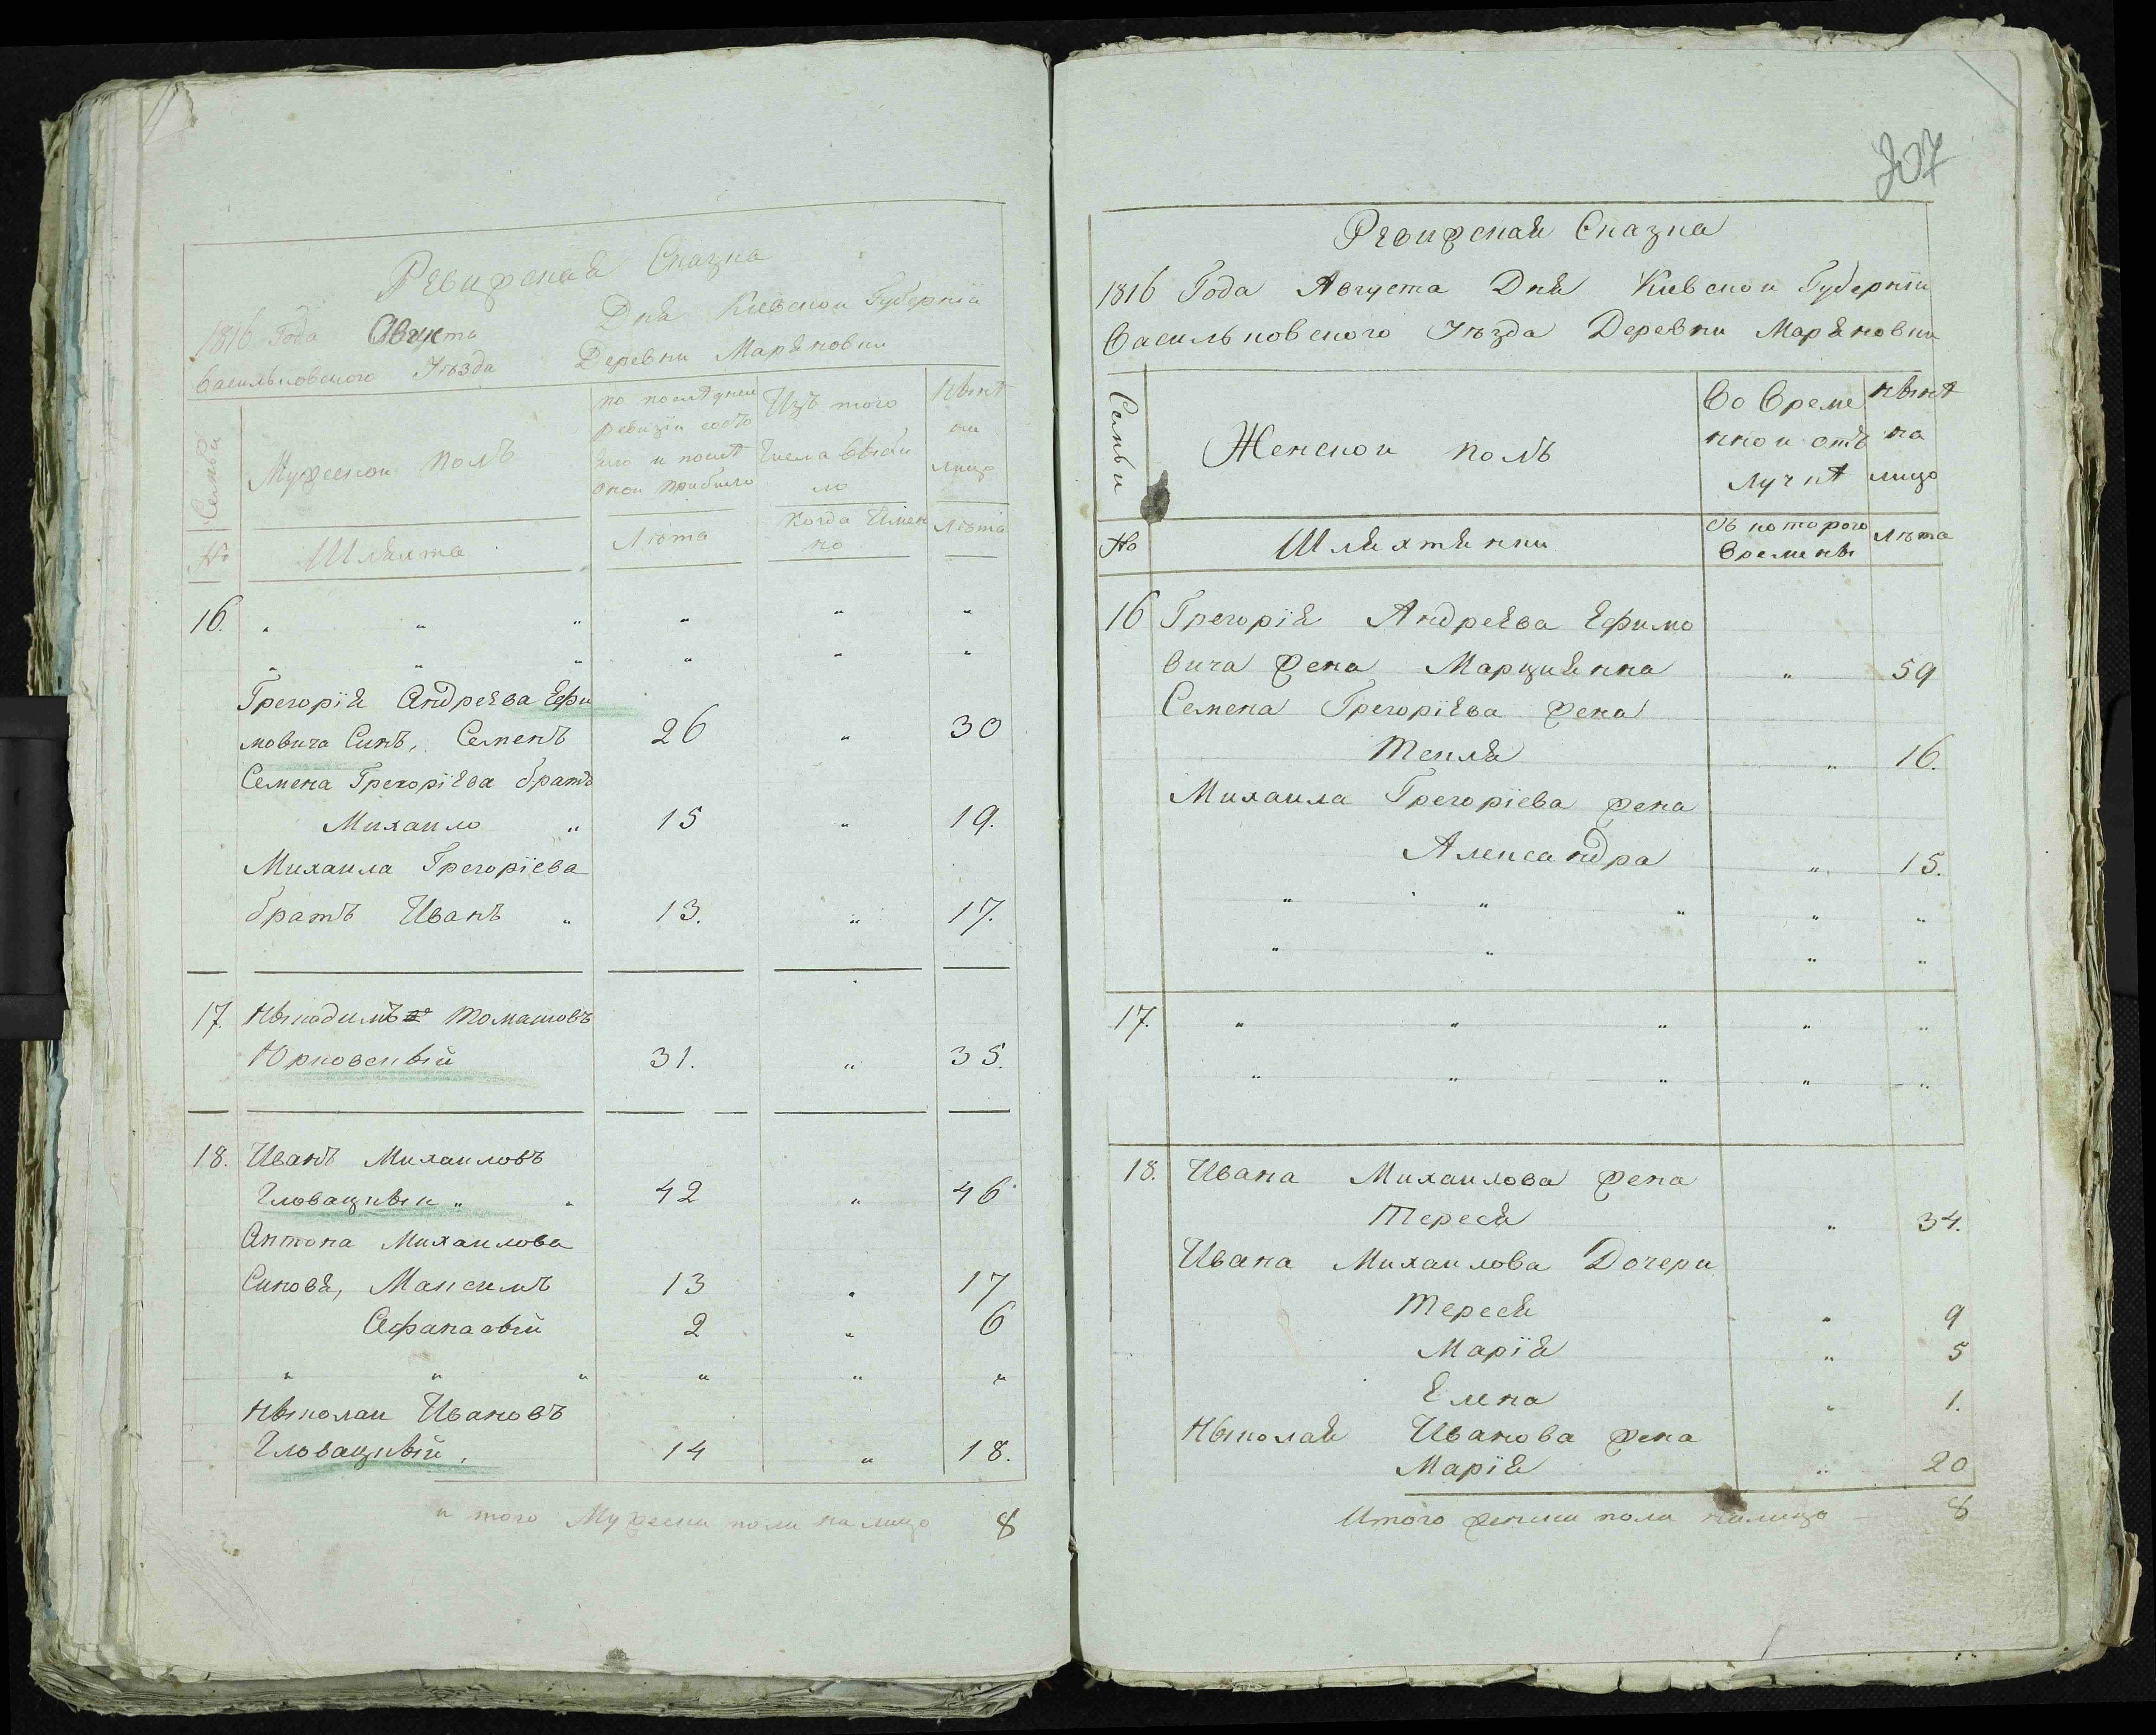 Ревижская Сказка
1816 Года Августа Дня Киевской Губернїи
Васильковского Уѣзда Деревни Маряновки
Семьи
Мужеской полъ
по последнеи
ревизїи состо
яло и послѣ
оной прибыло
Изъ того
числа выбы
ло
Нынѣ
на
лицо
№
Шляхта
Лѣта
Когда Имен
но
Лѣта
16. " " " " " "
" " " " " "
Грегорїя Андреева Ефи
мовича Синъ, Семенъ 26 " 30
Семена Грегорїева братъ
Михаило " 15 " 19.
Михаила Грегорїева
братъ Иванъ " 13. " 17.
17. Никодимъ Томашовъ
Юрковскый 31. " 35.
18. Иванъ Михаиловъ
Гловацкыи " " 42 " 46
Антона Михаилова
Синовя, Максимъ 13 " 17
Афанасый 2 " 6
" " " " " "
Ныколаи Ивановъ
Гловацкый, 14 " 18.
и того Мужеска пола на лицо 8
207
Ревижская Сказка
1816 Года Августа Дня Киевской Губернїи
Васильковского Уѣзда Деревни Маряновки
Семьи
Женской полъ
Во Време
нной отъ
лучкѣ
Нынѣ
на
лицо
№
Шляхтянки
Съ которого
Времены
Лѣта
16 Грегорїя Андреева Ефимо
вича жена Марциянна " 59
Семена Грегорїева жена
Текля " 16.
Михаила Грегорїева жена
Александра " 15.
" " " " "
" " " "
17. " " " " "
" " " " "
18. Ивана Михаилова жена
Тереся " 34.
Ивана Михаилова Дочери
Тереся " 9
Марїя " 5
Елена " 1.
Ныколая Иванова жена
Марїя " 20
Итого женска пола налицо 8